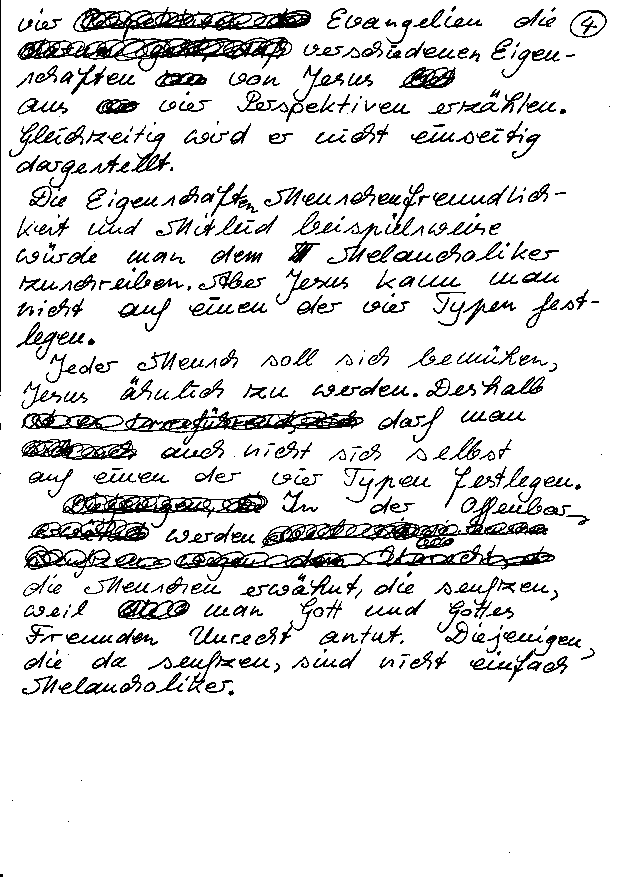 vier Evangelien die 4
verschiedenen Eigen-
schaften von Jesus
aus vier Perspektiven erzählen.
Gleichzeitig wird er nicht einseitig
dargestellt.
Die Eigenschaften Menschenfreundlich-
keit und Mitleid beispielsweise
würde man dem Melancholiker
zuschreiben. Aber Jesus kann man
nicht auf einen der vier Typen fest-
legen.
Jeder Mensch soll sich bemühen,
Jesus ähnlich zu werden. Deshalb
darf man
auch nicht sich selbst
auf einen der vier Typen festlegen.
In der Offenbar-
werden
die Menschen erwähnt, die seufzen,
weil man Gott und Gottes
Freunden Unrecht antut. Diejenigen,
die da seufzen, sind nicht einfach
Melancholiker.